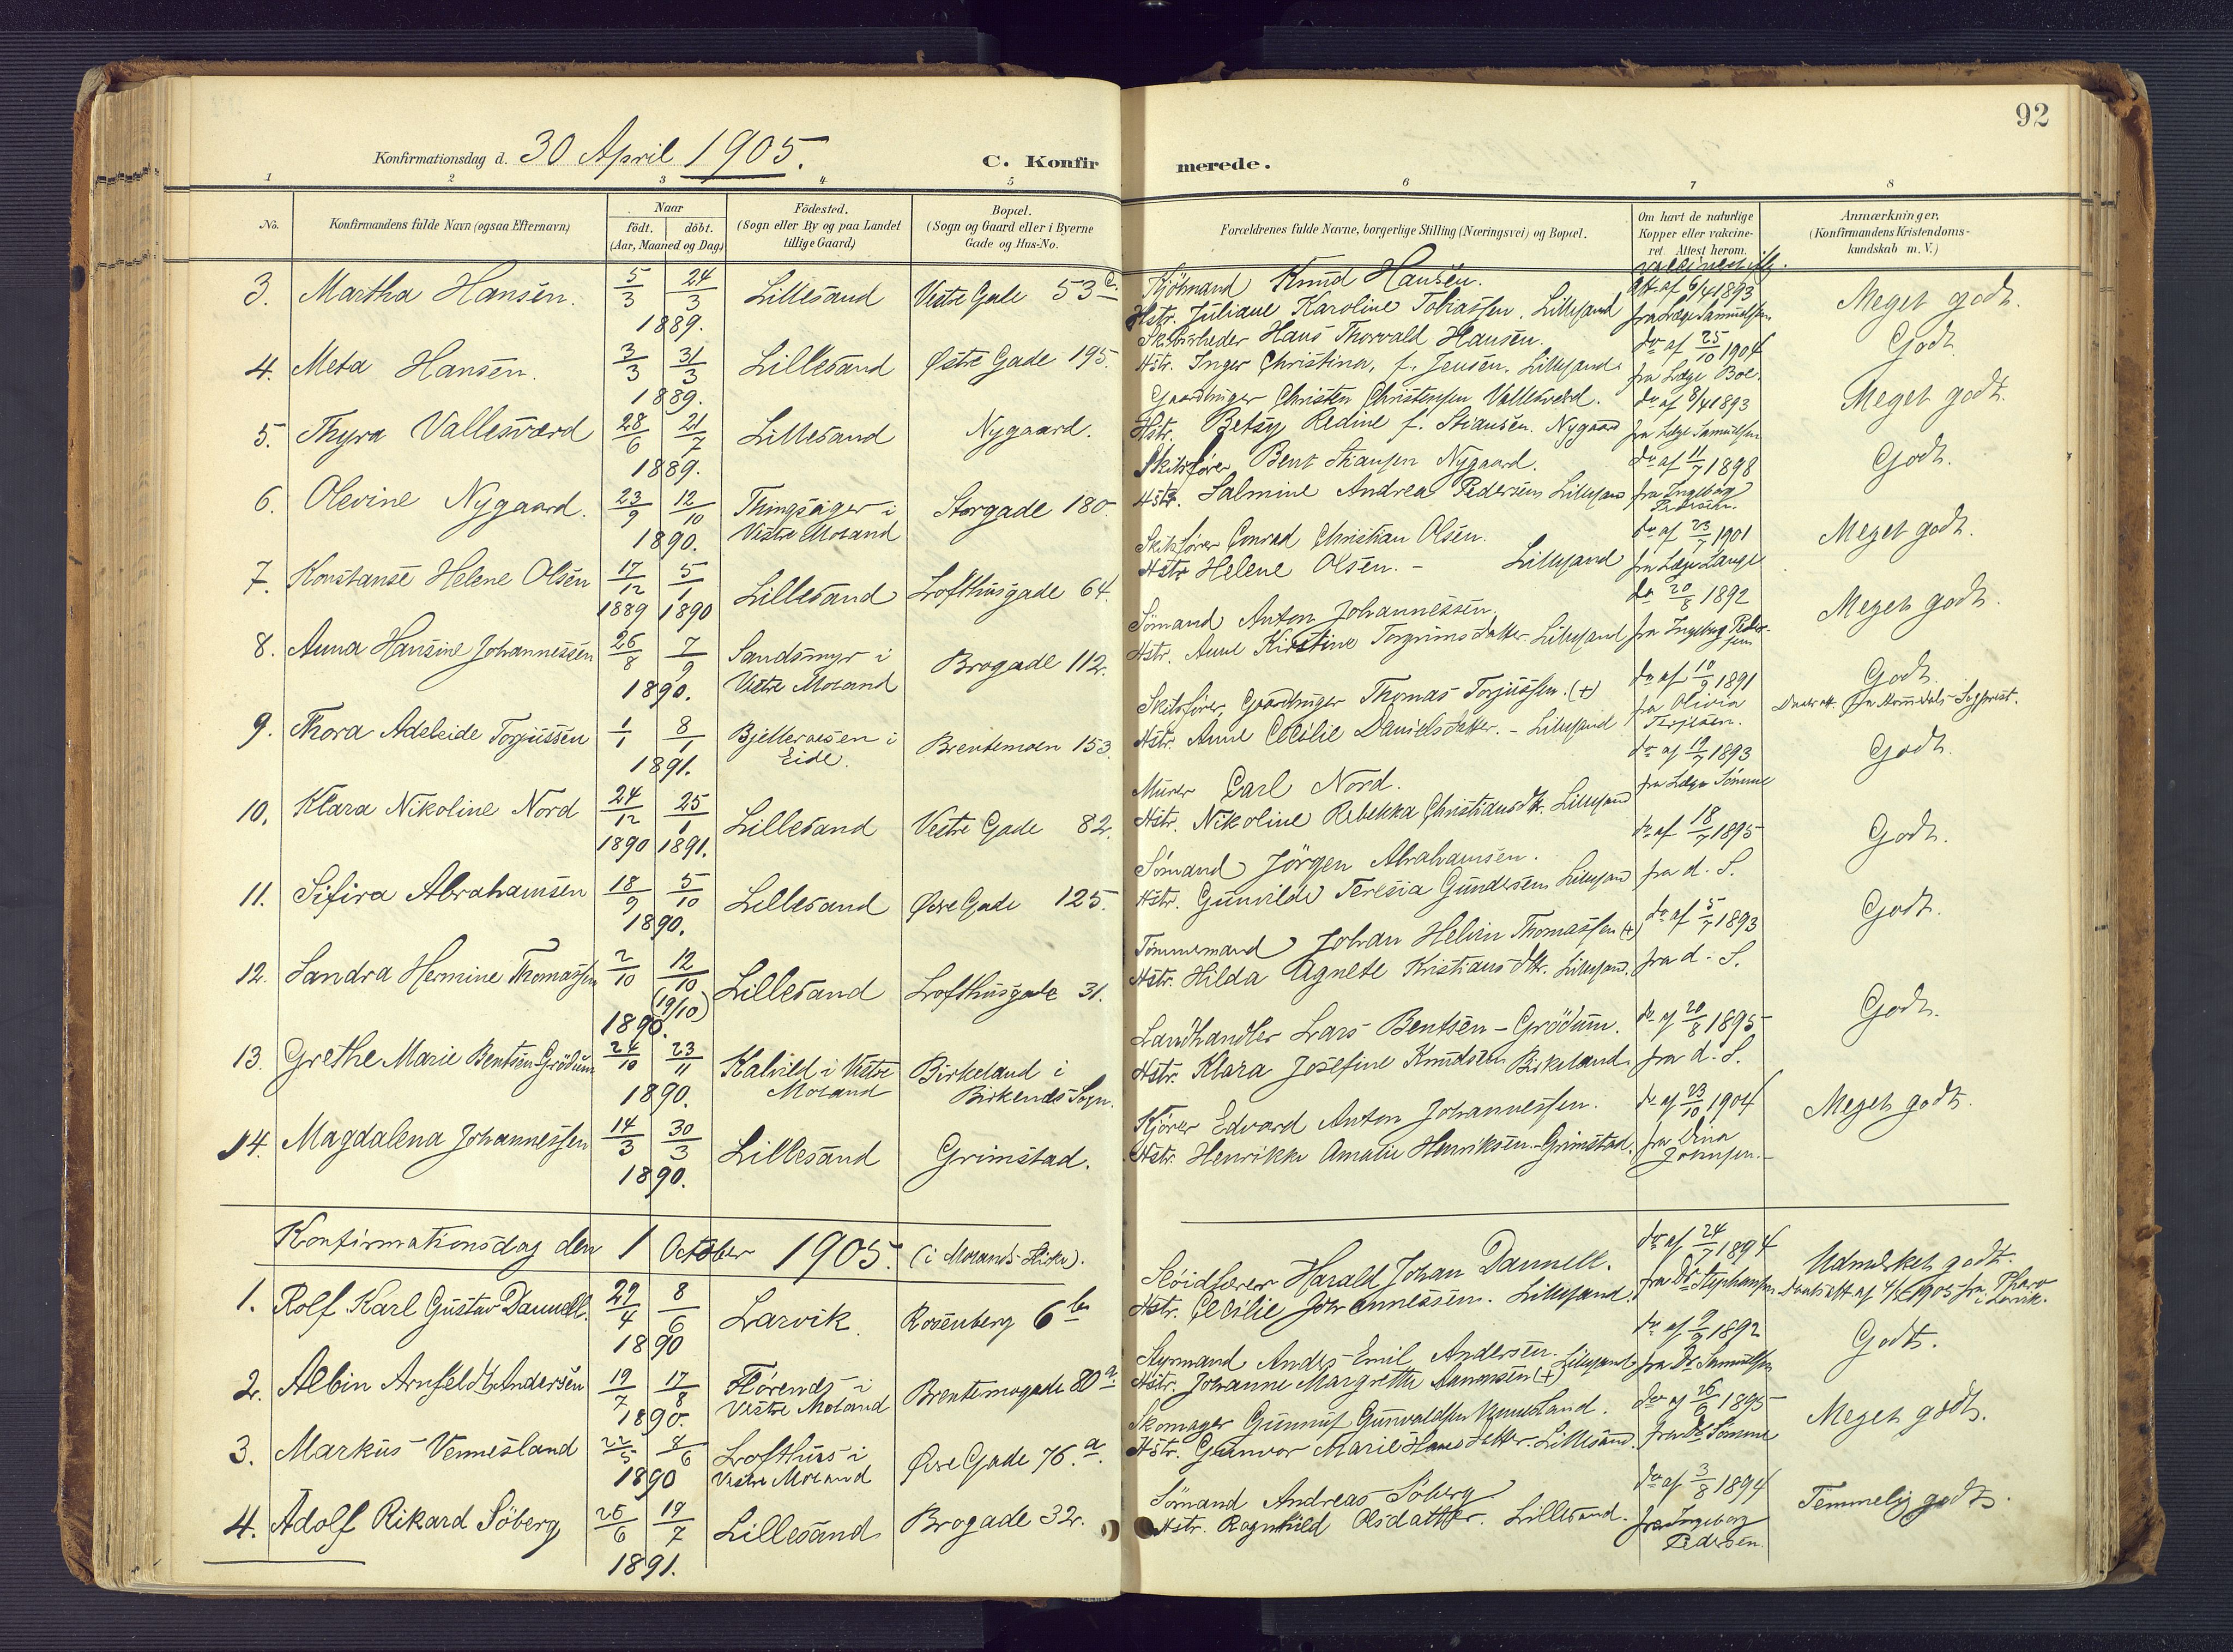 92
Konfirmationsdag d. 30 April 1905.
C. Konfirmerede.
1 2 3 4 5 6 7 8
No.
Konfirmandens fulde Navn (ogsaa Efternavn)
Naar
födt. döbt.
(Aar, Maaned og Dag)
Födested.
(Sogn eller By og paa Landet
tillige Gaard)
Bopæl.
(Sogn og Gaard eller i Byerne
Gade og Hus-No.
Forældrenes fulde Navne, borgerlige Stilling (Næringsvei) og Bopæl.
Om havt de naturlige
Kopper eller vakcine-
ret. Attest herom.
Anmærkninger.
(Konfirmandens Kristendoms-
kundskab m. V.)
3. Martha Hansen. 5/3 24/3 1889. Lillesand Vestre Gade 53
Kjöbmand Knud Hansen.
Hstr. Juliane Karoline Tobiassen. Lillesand
att af 6/4 1893
fra Læge Samuelsen
Meget godt.
4. Meta Hansen. 3/3 31/3 1889. Lillesand Østre Gade 195.
Skibsrheder Hans Thorvald Hansen.
Hstr. Inger Christina, f. Jensen. Lillesand.
do af 25/10 1904
fra Læge Boe.
Godt
5. Thyra Vallesværd 28/6 21/7 1889. Lillesand Nygaard.
Gaardbruger Christen Christensen Vallesværd.
Hstr. Betsy Redine f. Stiansen. Nygaard
do af 8/4 1893
fra Læge Samuelsen
Meget godt.
6. Olevine Nygaard. 23/9 12/10 1890. Thingsager i
Vestre Moland
Storgade 180
Skibsfører Bent Stiansen Nygaard.
Hstr. Salmine Andrea Pedersen Lillesand
do af 11/7 1898
fra Ingeborg
Pedersen.
Godt.
7. Konstanse Helene Olsen 17/12 1889 5/1 1890 Lillesand Lofthusgade 64.
Skibsfører Conrad Christian Olsen.
Hstr Helene Olsen. - Lillesand
do af 23/7 1901
fra Læge Lange
Meget godt.
8. Anna Hansine Johannessen 26/8 7/9 1890. Sandsmyr i
Vestre Moland
Brogade 112.
Sömand Anton Johannessen.
Hstr. Anne Kirstine Torgrimsdatter Lillesand
do 20/8 1892
fra Ingeborg Pedersen
Meget godt.
9. Thora Adeleide Torjussen 1/1 8/1 1891. Bjelleraasen i
Eide.
Brentemoen 153
Skibsfører, Gaardbruger Thomas Torjussen. (+)
Hstr. Anne Cecilie Danielsdatter. - Lillesand
do af 10/9 1891
fra Olivia
Terjesen.
Godt.
10. Klara Nikoline Nord 24/12 1890 25/1 1891. Lillesand Vestre Gade 82.
Murer Carl Nord.
Hstr. Nikoline Rebekka Christiansdtr. Lillesand
do af 19/7 1893
fra Læge Sömme
Godt.
11. Sifira Abrahamsen 18/9 5/10 1890. Lillesand Øvre Gade 125.
Sömand Jörgen Abrahamsen.
Hstr. Gunvilde Teresia Gundersen Lillesand
do af 18/7 1895
fra d. S.
Godt.
12. Sandra Hermine Thomassen 2/10 12/10 (19/10) 1890. Lillesand Lofthusgade 31.
Tömmermand Johan Helvin Thomassen (+)
Hstr. Hilda Agnete Kristiansdtr. Lillesand.
do af 5/7 1893
fra d. S.
Godt.
13. Grethe Marie Bentsen Grödum 24/10 23/11 1890. Kalvild i Vestre
Moland
Birkeland i
Birkenes Sogn.
Landhandler Lars Bentsen-Grödum.
Hstr. Klara Josefine Knudsen Birkeland.
do af 20/8 1895
fra d. S.
Godt.
14. Magdalena Johannessen 14/3 30/3 1890. Lillesand Grimstad.
Kjörer Edvard Anton Johannessen.
Hstr. Henrikke Amalie Henriksen-Grimstad.
do af 23/10 1904
fra Dina
Johnsen.
Meget godt.
Konfirmationsdag den 1 October 1905. (i Molands Kirke).
1. Rolf Karl Gustav Dannell. 29/4 8/6 1890 Larvik Rosenberg 6 b
Sløidlærer Harald Johan Dannell.
Hstr. Cecilie Johannessen. Lillesand.
do af 24/7 1894
fra Dr Stephansen
Udmerket godt.
2. Albin Arnfeldt Andersen 19/7 17/8 1890. Flørenes i
Vestre Moland
Brentemogade 80 a
Styrmand Anders Emil Andersen.
Hstr. Johanne Margrethe Aanonsen (+) Lillesand
do af 9/9 1892
fra Dr Samuelsen
Godt.
3. Markus Vennesland 22/5 8/6 1890 Lofthus i
Vestre Moland
Øvre Gade 76. a.
Skomager Gunnuf Gunvaldsen Vennesland.
Hstr. Gunvor Marie Hansdatter. Lillesand.
do af 26/6 1895
fra Dr Sömme
Meget godt.
4. Adolf Rikard Söberg 26/6 19/7 1891. Lillesand Brogade 32.
Sömand Andreas Söberg
Hstr. Ragnhild Olsdatter. Lillesand.
do af 3/8 1894
fra Ingeborg
Pedersen
Temmelig godt.